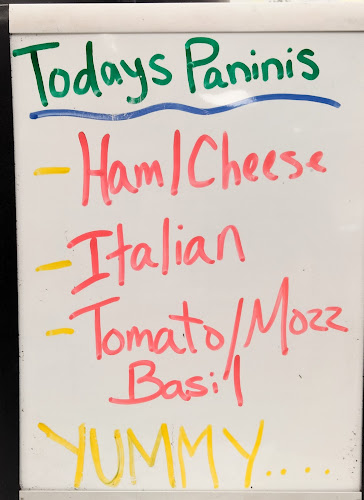 Todays Paninis
- Ham/Cheese
- Italian
- Tomato/Mozz
Basil
YUMMY....